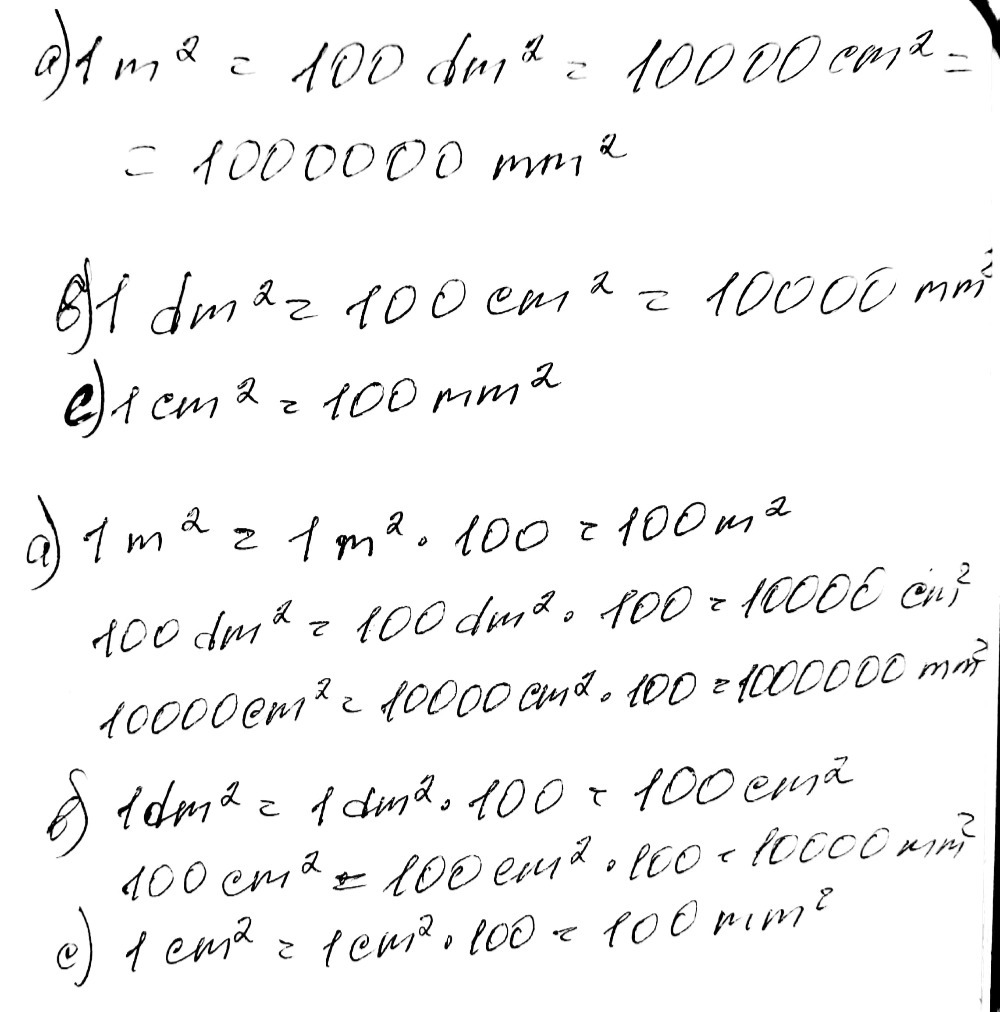 a) 1 m² = 100 dm² = 10000 cm² =
= 1000000 mm²
б) 1 dm² = 100 cm² = 10000 mm²
c) 1 cm² = 100 mm²
a) 1 m² = 1 m² · 100 = 100 m²
100 dm² = 100 dm² · 100 = 10000 cm²
10000 cm² = 10000 cm² · 100 = 1000000 mm²
б) 1 dm² = 1 dm² · 100 = 100 cm²
100 cm² = 100 cm² · 100 = 10000 mm²
c) 1 cm² = 1 cm² · 100 = 100 mm²